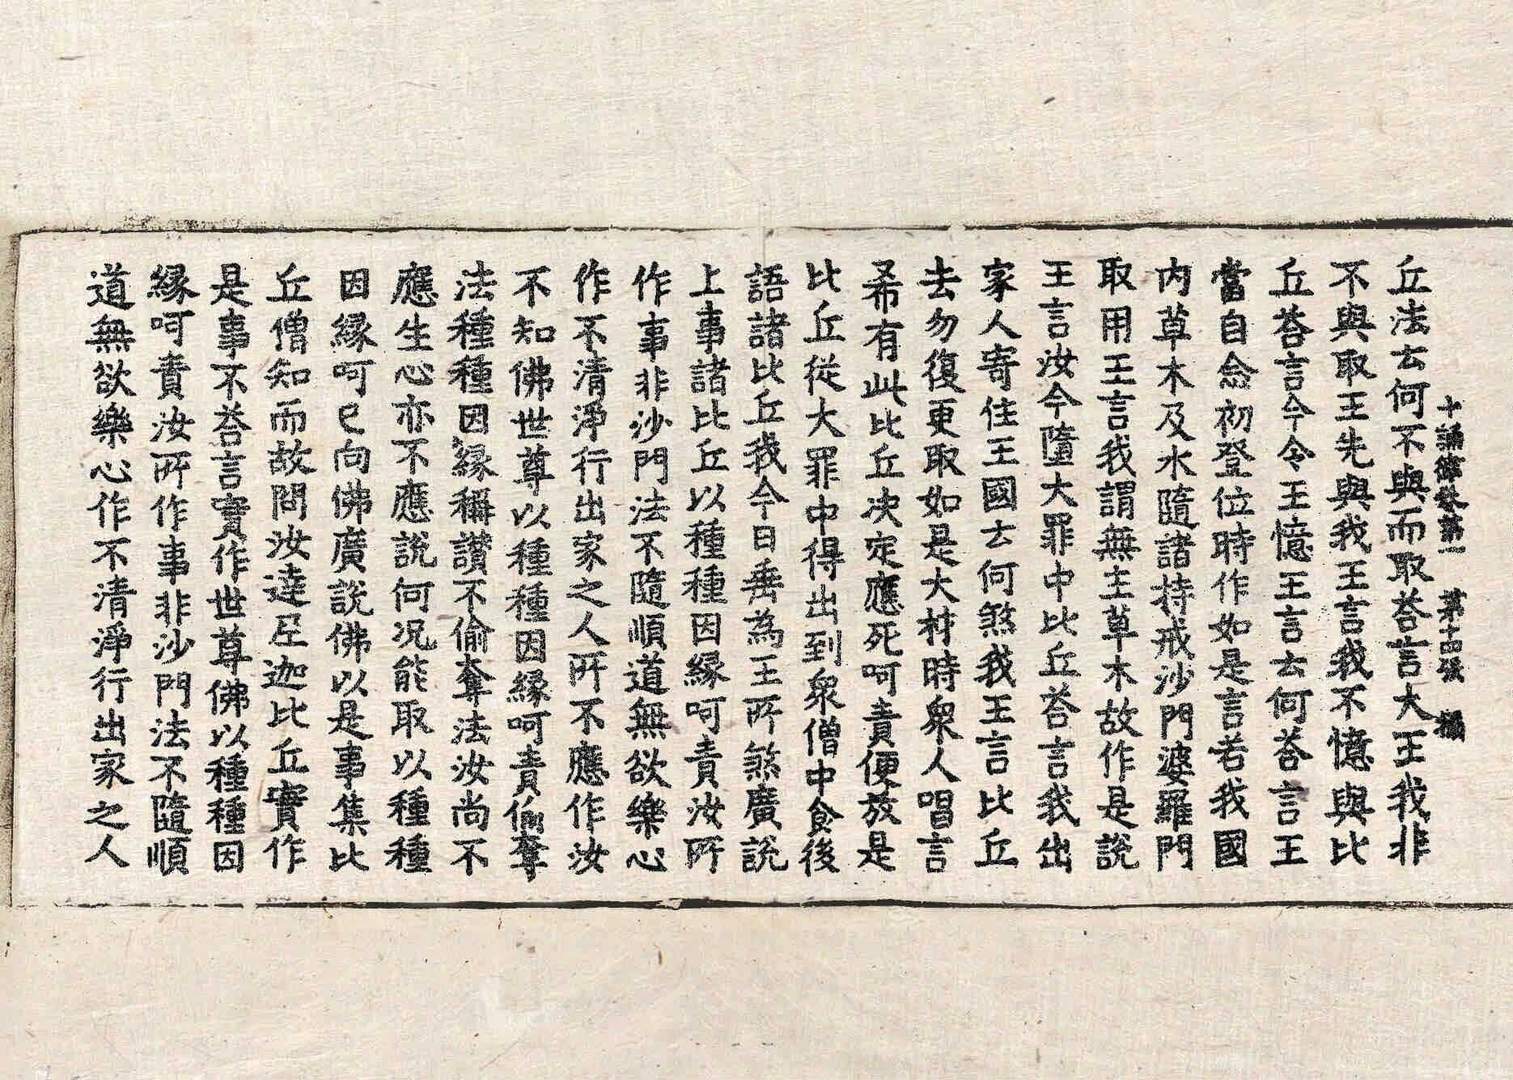 十誦律卷第一 第十四張 攝
丘法去何不與而取荅言大王我非
不與取王先與我王言我不憶與比
丘荅言今令王憶王言去何荅言王
當自念初登位時作如是言若我國
內草木及水隨諸持戒沙門婆羅門
取用王言我謂無主草木故作是說
王言汝今墮大罪中比丘荅言我出
家人寄住王國去何煞我王言比丘
去勿復更取如是大材時衆人唱言
希有此比丘決定應死呵責便放是
比丘從大罪中得出到衆僧中食後
語諸比丘我今日垂為王所煞廣說
上事諸比丘以種種因緣呵責汝所
作事非沙門法不隨順道無欲樂心
作不清淨行出家之人所不應作汝
不知佛世尊以種種因緣呵責偷奪
法種種因緣稱讚不偷奪法汝尚不
應生心亦不應說何况能取以種種
因緣呵已向佛廣說佛以是事集比
丘僧知而故問汝達尼迦比丘實作
是事不荅言實作世尊佛以種種因
緣呵責汝所作事非沙門法不隨順
道無欲樂心作不清淨行出家之人